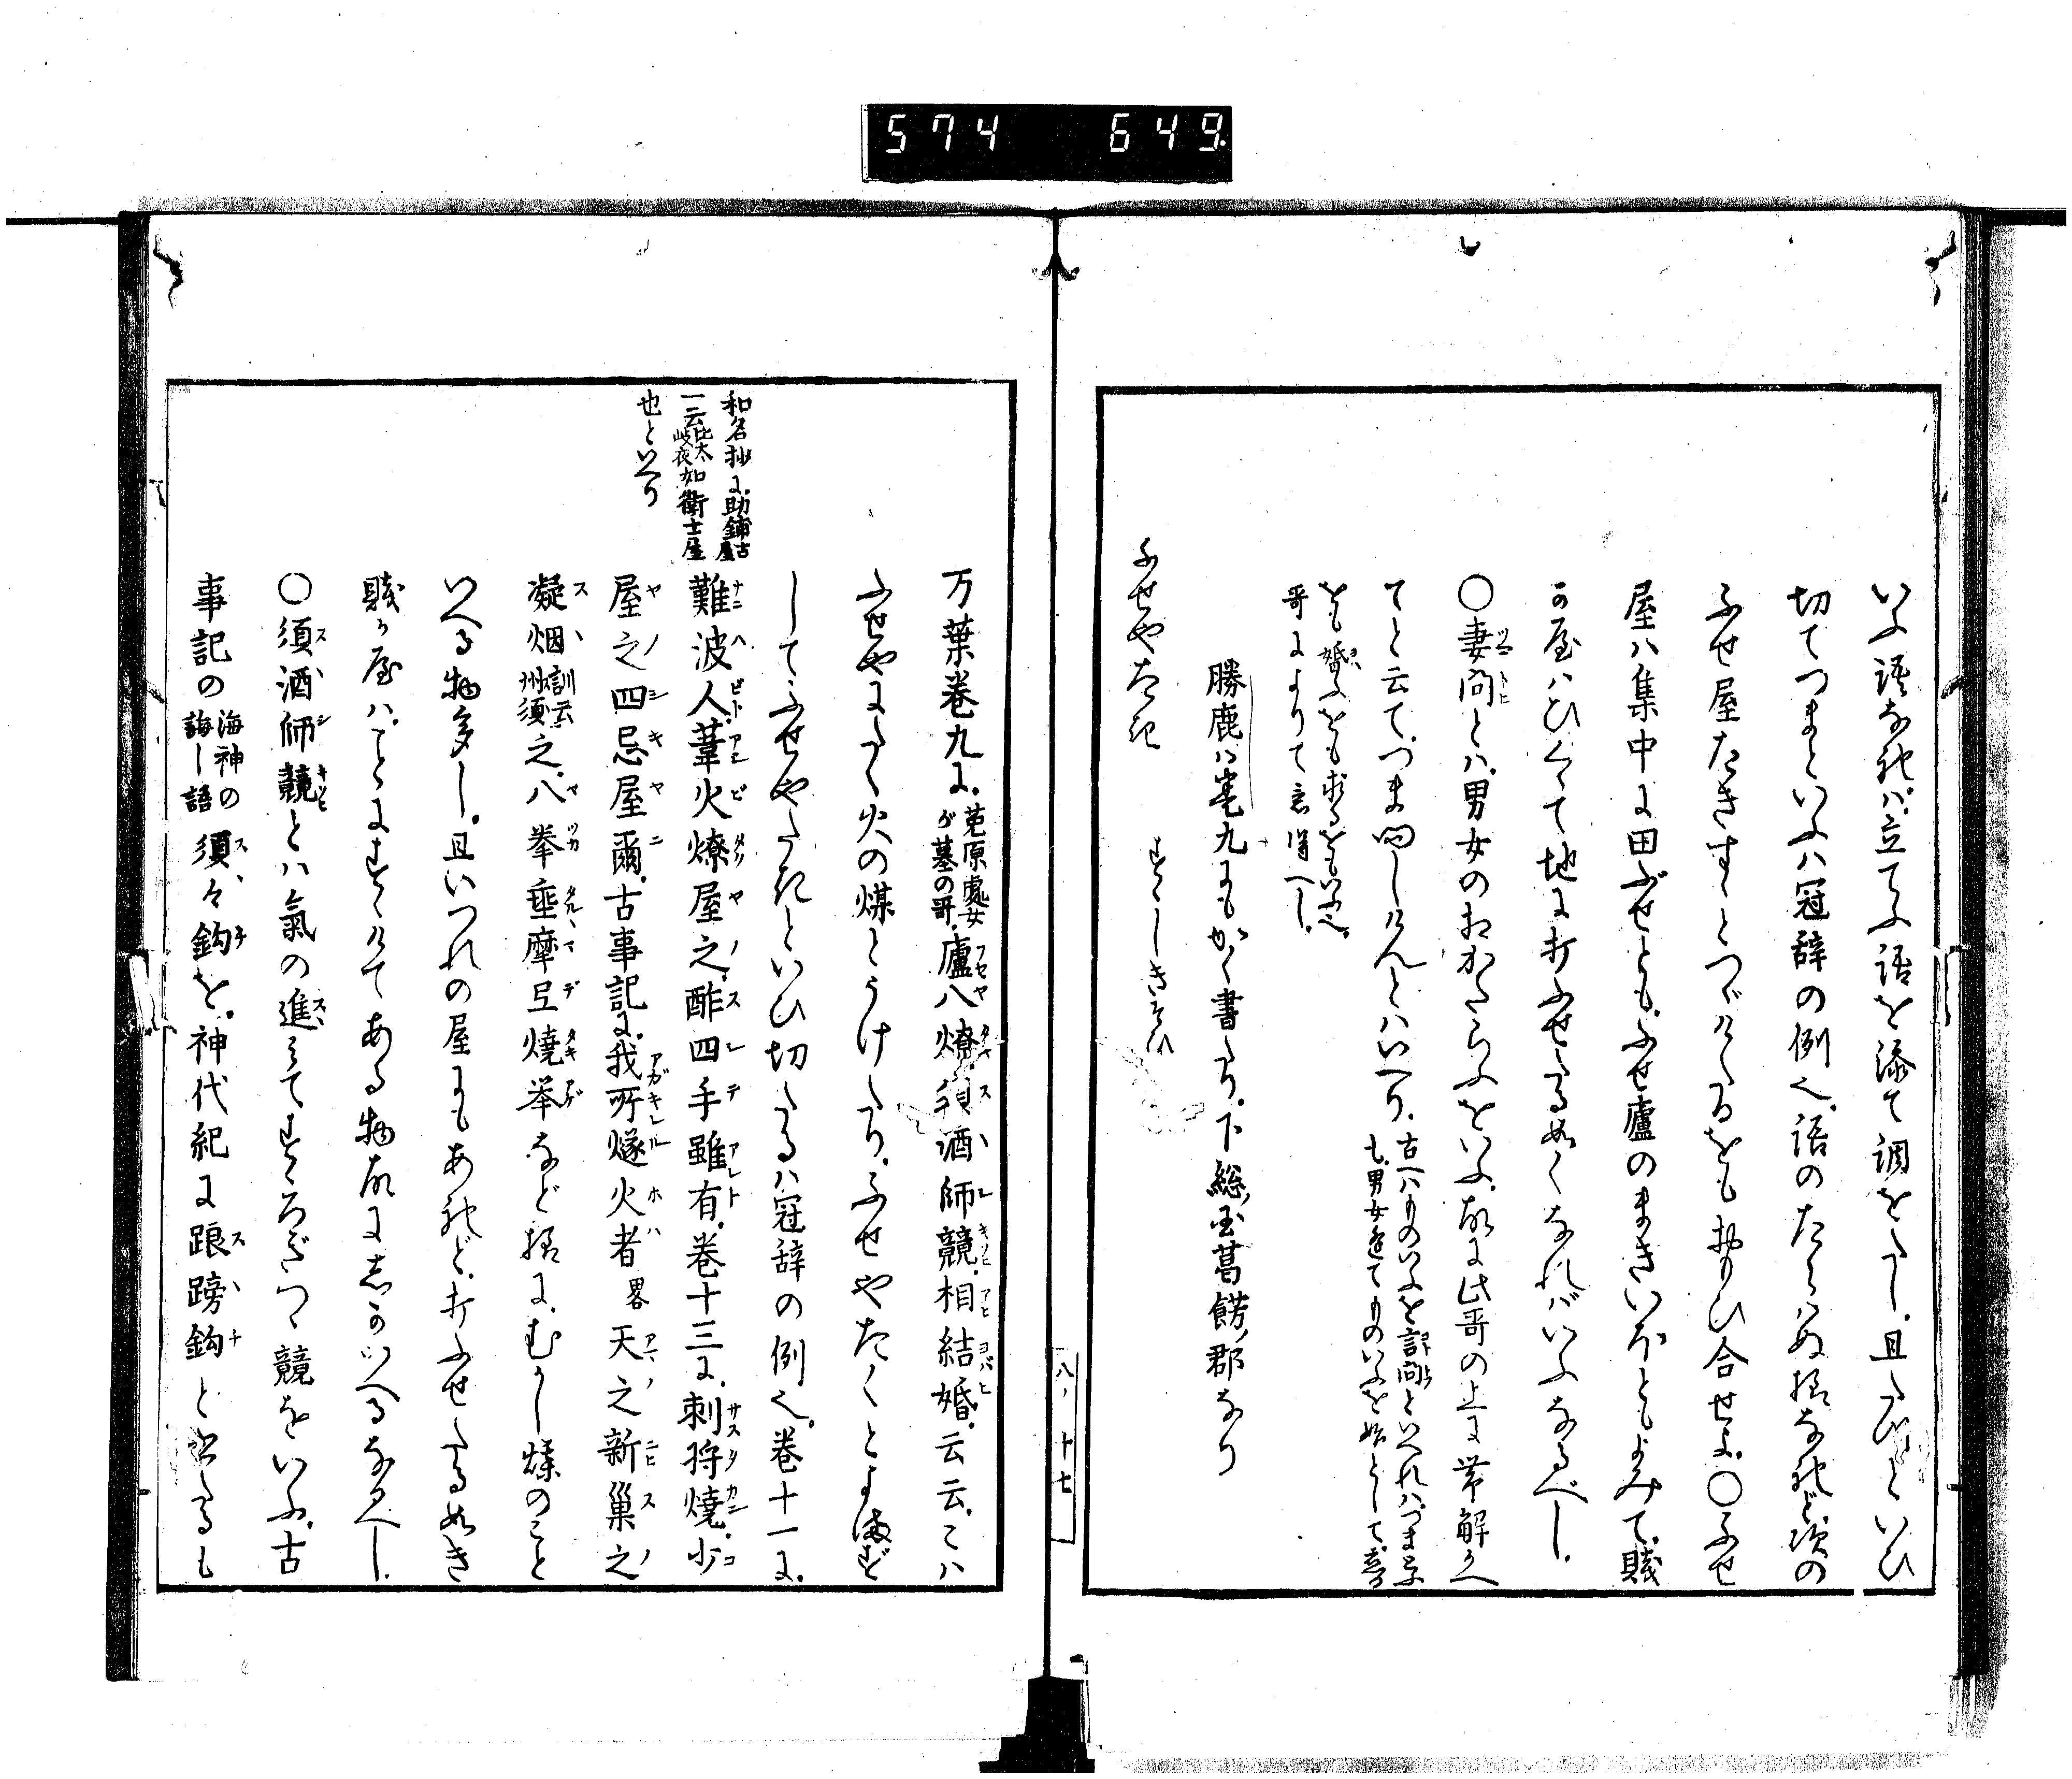 574 649
いふ語なれバ立てふ語を添て調をなし。且たびといひ
切てつまといふハ冠辞の例也。語のたらハぬ様なれど次の
ふせ屋たきすゝとつゞけたるをもおもひ合せよ。〇ふせ
屋ハ集中に田ぶせとも。ふせ廬のまきいほともよみて。賤
の屋ハひくくて地に打ふせたる如くなれバいふなるべし。
〇妻問とハ。男女のおかたらふをいふ。故に此哥の上に帯解かへ
てと云て。つま問しけんとハいへり。
古へハものいふを言問といへれハつま問
も。男女逢てものいふを始として。
をも婚ふをも求るをもいふ也。
哥によりて意得へし。
勝鹿ハ巻九にもかく書たり。下総ノ国葛餝ノ郡なり
ふせやたき すゝしきそひ
八ノ 十七
万葉巻九に。
菟原處女
が墓の哥。
廬八燎須酒師競。相結婚。云云。こハ
ふせやにたく火の煤とうけたり。ふせやたくとよまず
して。ふせやたきといひ切たるハ冠辞の例也。巻十一に。
難波人葦火燎屋之。酢四手雖有。巻十三に。刺将焼。少
屋之四忌屋爾。古事記に。我所燧火者畧天之新巣之
凝烟
訓云
州須
之。八拳垂摩弖焼挙など様に。むかし煤のこと
いへる物多し。且いつれの屋にもあれど。打ふせたる如き
賤か屋ハ。ことにすゝけてある物故に志かいへるなるへし。
〇須酒師競とハ氣の進みてすゝろぎつゝ競をいふ。古
事記の
海神の
誨し語
須々鉤を。神代紀に踉䠙鉤と書たるも
和名抄に。助鋪古屋
一云比太岐夜如衛士屋
也といへり